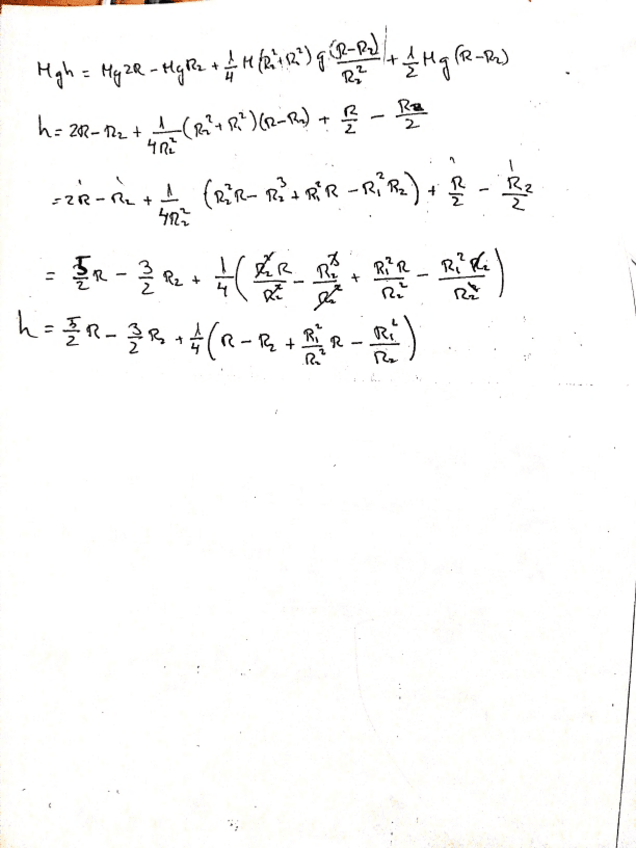 Mgh = Mg2R - MgR₂ + 1/4 M(R₂² + R₁²) g (R-R₂)/R₂² + 1/2 Mg (R-R₂)
h = 2R - R₂ + 1/(4R₂²) (R₂² + R₁²)(R-R₂) + R/2 - R₂/2
= 2R - R₂ + 1/(4R₂²) (R₂²R - R₂³ + R₁²R - R₁²R₂) + R/2 - R₂/2
= 5/2 R - 3/2 R₂ + 1/4 (R₂²R/R₂² - R₂³/R₂² + R₁²R/R₂² - R₁²R₂/R₂²)
h = 5/2 R - 3/2 R₂ + 1/4 (R - R₂ + R₁²/R₂² R - R₁²/R₂)